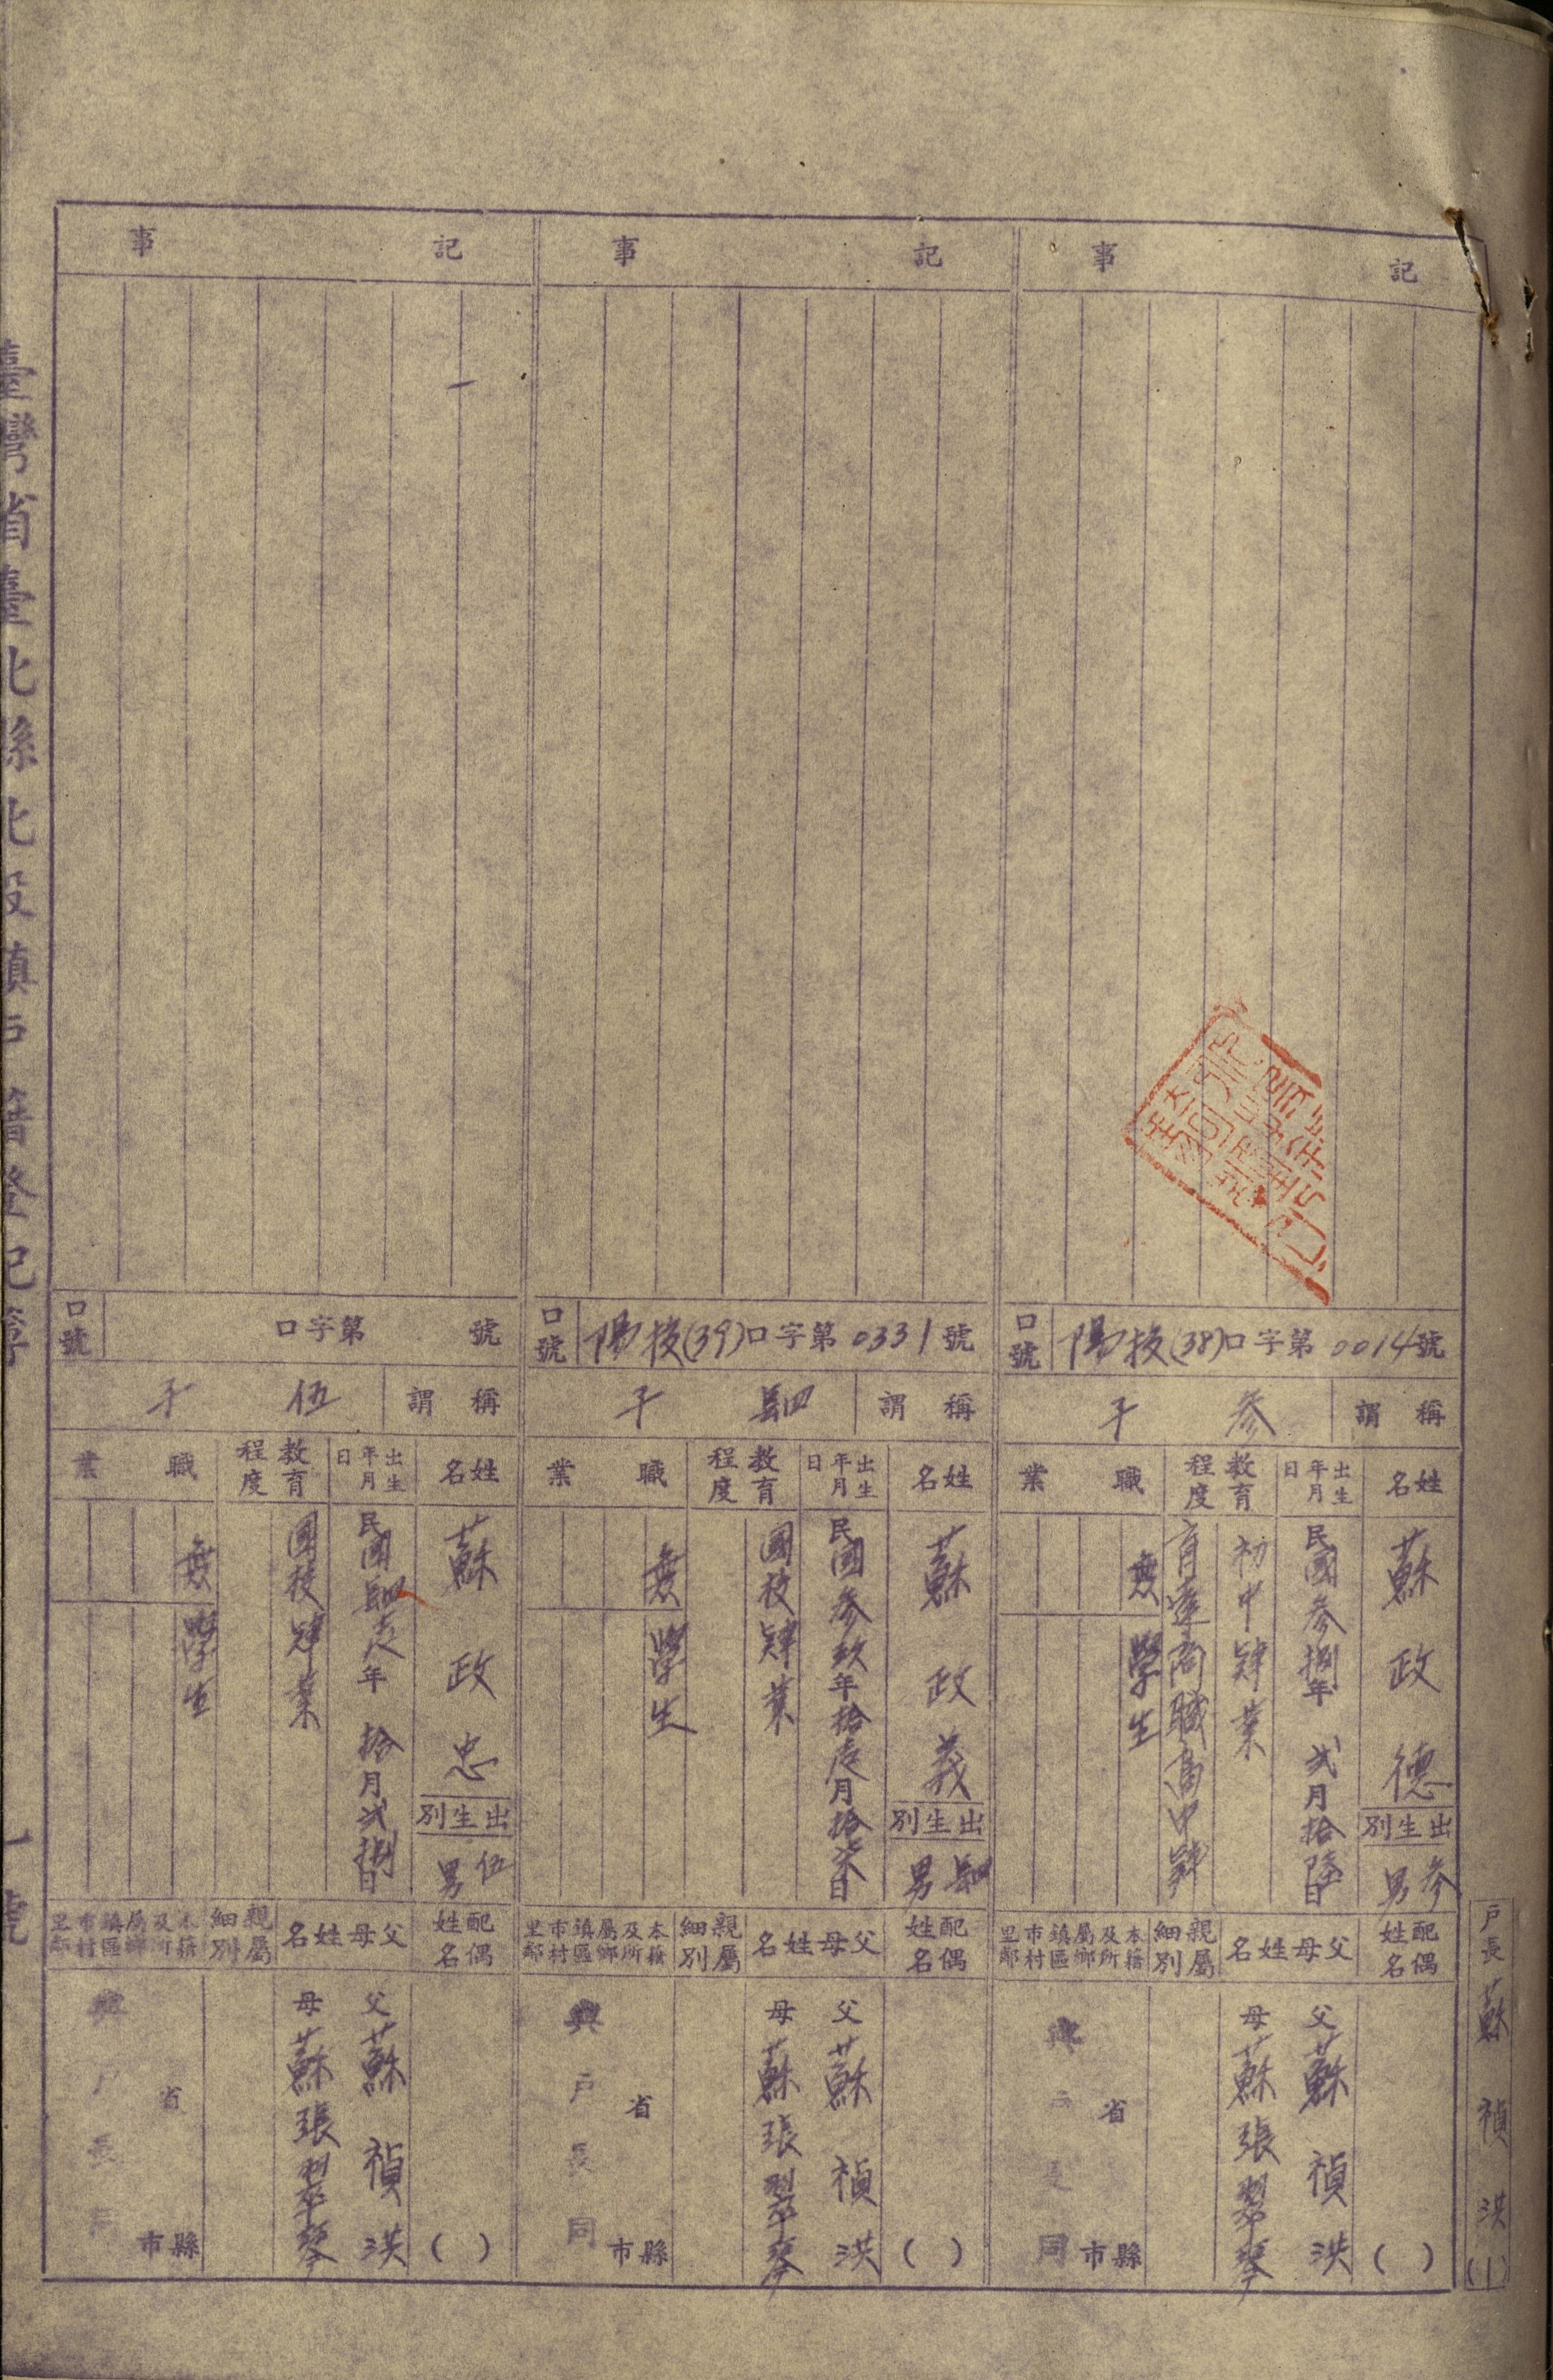 戶長蘇禎洪(1)
記事
口號 陽投(38)口字第0014號
稱謂 參子
姓名 蘇政德
出生別 參男
出生年月日 民國參捌年貳月拾陸日
教育程度 初中肄業
育達商職高中肄
職業 無 學生
配偶姓名 ( )
父母姓名 父蘇禎洪
母蘇張翠琴
親屬細別
本籍及所屬鄉鎮區市村里鄰 省 縣市
與戶長同
記事
口號 陽投(39)口字第0331號
稱謂 肆子
姓名 蘇政義
出生別 肆男
出生年月日 民國參玖年拾壹月拾柒日
教育程度 國校肄業
職業 無 學生
配偶姓名 ( )
父母姓名 父蘇禎洪
母蘇張翠琴
親屬細別
本籍及所屬鄉鎮區市村里鄰 省 縣市
與戶長同
記事
口號 口字第 號
稱謂 伍子
姓名 蘇政忠
出生別 伍男
出生年月日 民國肆壹年拾月貳捌日
教育程度 國校肄業
職業 無 學生
配偶姓名 ( )
父母姓名 父蘇禎洪
母蘇張翠琴
親屬細別
本籍及所屬鄉鎮區市村里鄰 省 縣市
與戶長同
臺灣省臺北縣北投鎮戶籍登記簿
號